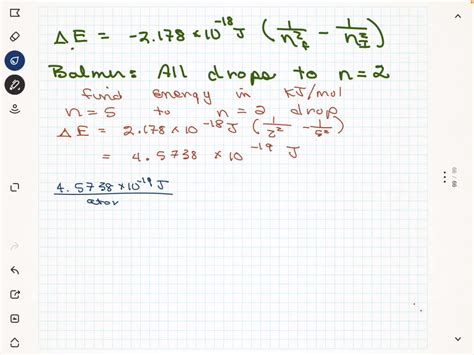 ΔE = -2.178×10⁻¹⁸ J (1/n_f² - 1/n_I²)
Balmer: All drops to n=2
find energy in KJ/mol
n=5 to n=2 drop
ΔE = 2.178×10⁻¹⁸ J (1/2² - 1/5²)
= 4.5738 × 10⁻¹⁹ J
4.5738×10⁻¹⁹ J
66 / 66